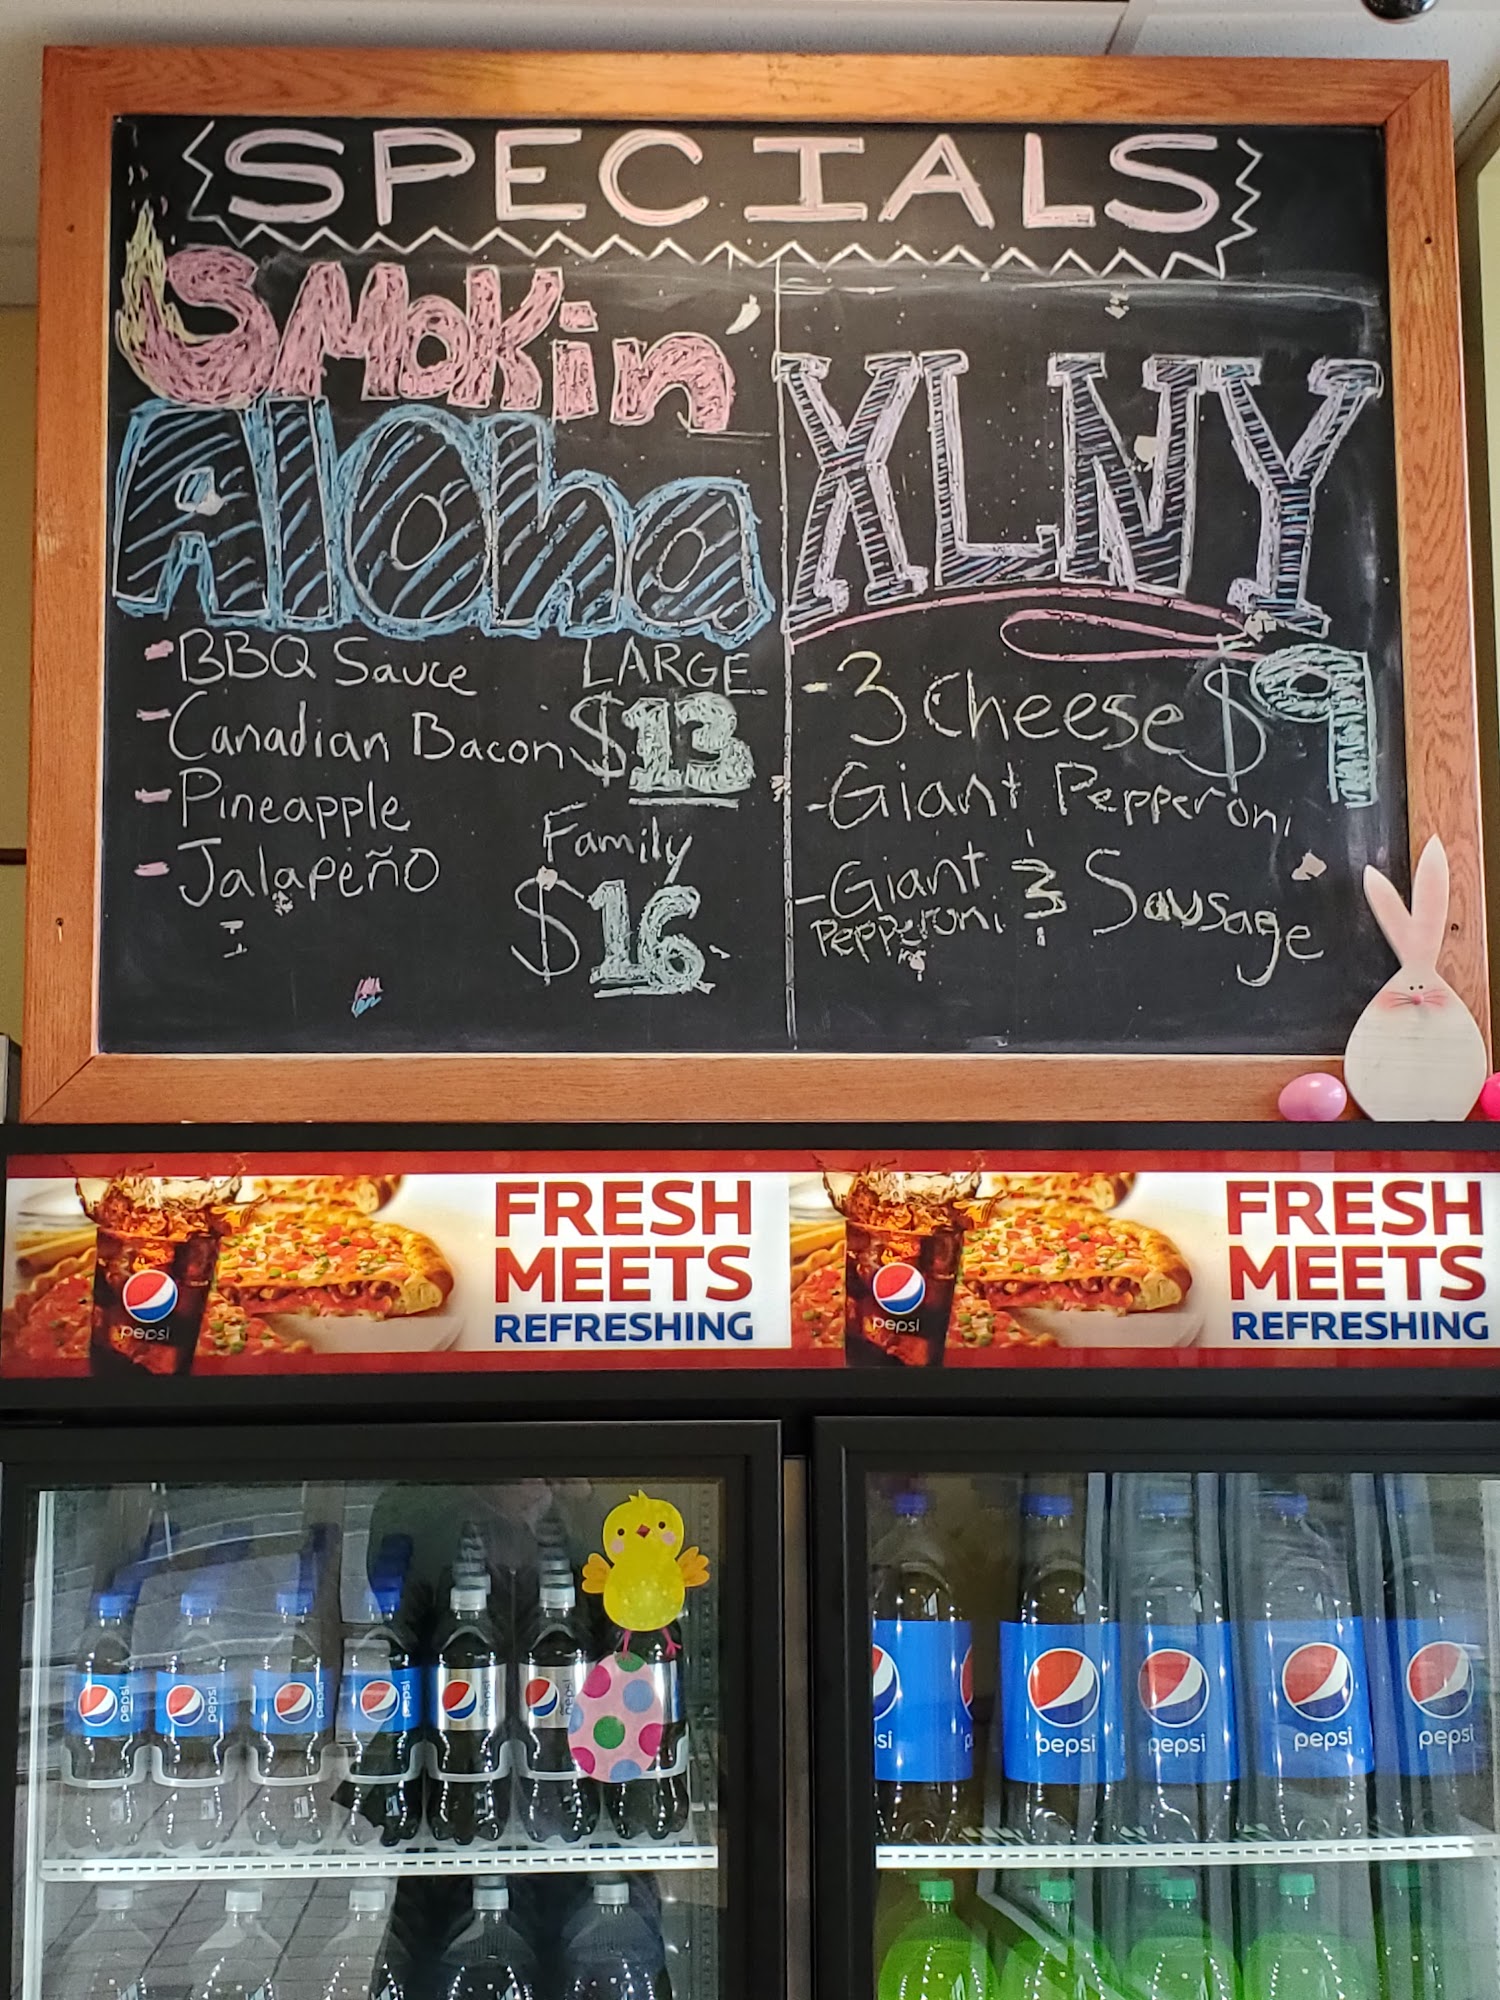 SPECIALS
SMOKin'
Aloha
- BBQ Sauce
- Canadian Bacon
- Pineapple
- Jalapeño
LARGE
$13
Family
$16
XLNY
$9
- 3 Cheese
- Giant Pepperoni
- Giant Pepperoni & Sausage
FRESH
MEETS
REFRESHING
pepsi
FRESH
MEETS
REFRESHING
pepsi
pepsi
pepsi
pepsi
pepsi
pepsi
pepsi
si
p
pepsi
pepsi
pepsi
pepsi